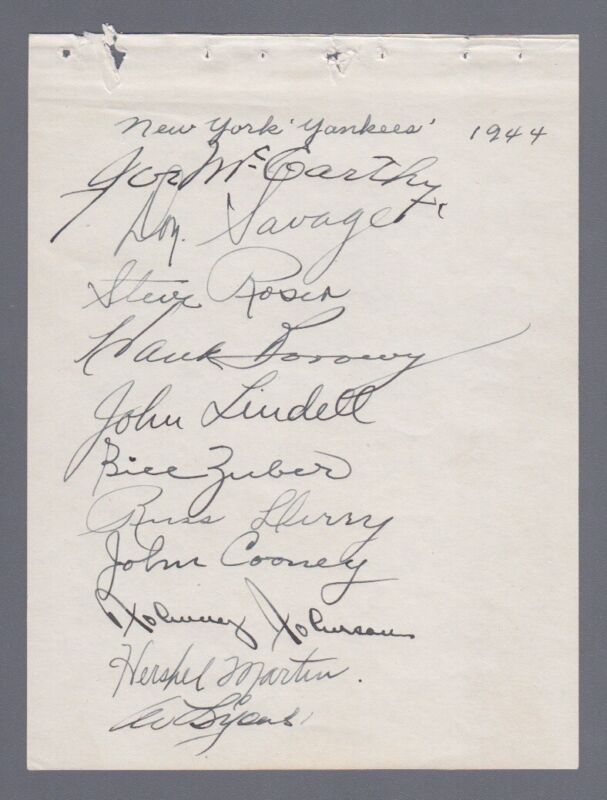 New York 'Yankees' 1944
Joe McCarthy
Don Savage
Steve Roser
Hank Borowy
John Lindell
Bill Zuber
Russ Derry
John Cooney
Johnny Johnson
Hershel Martin.
Al Lyons